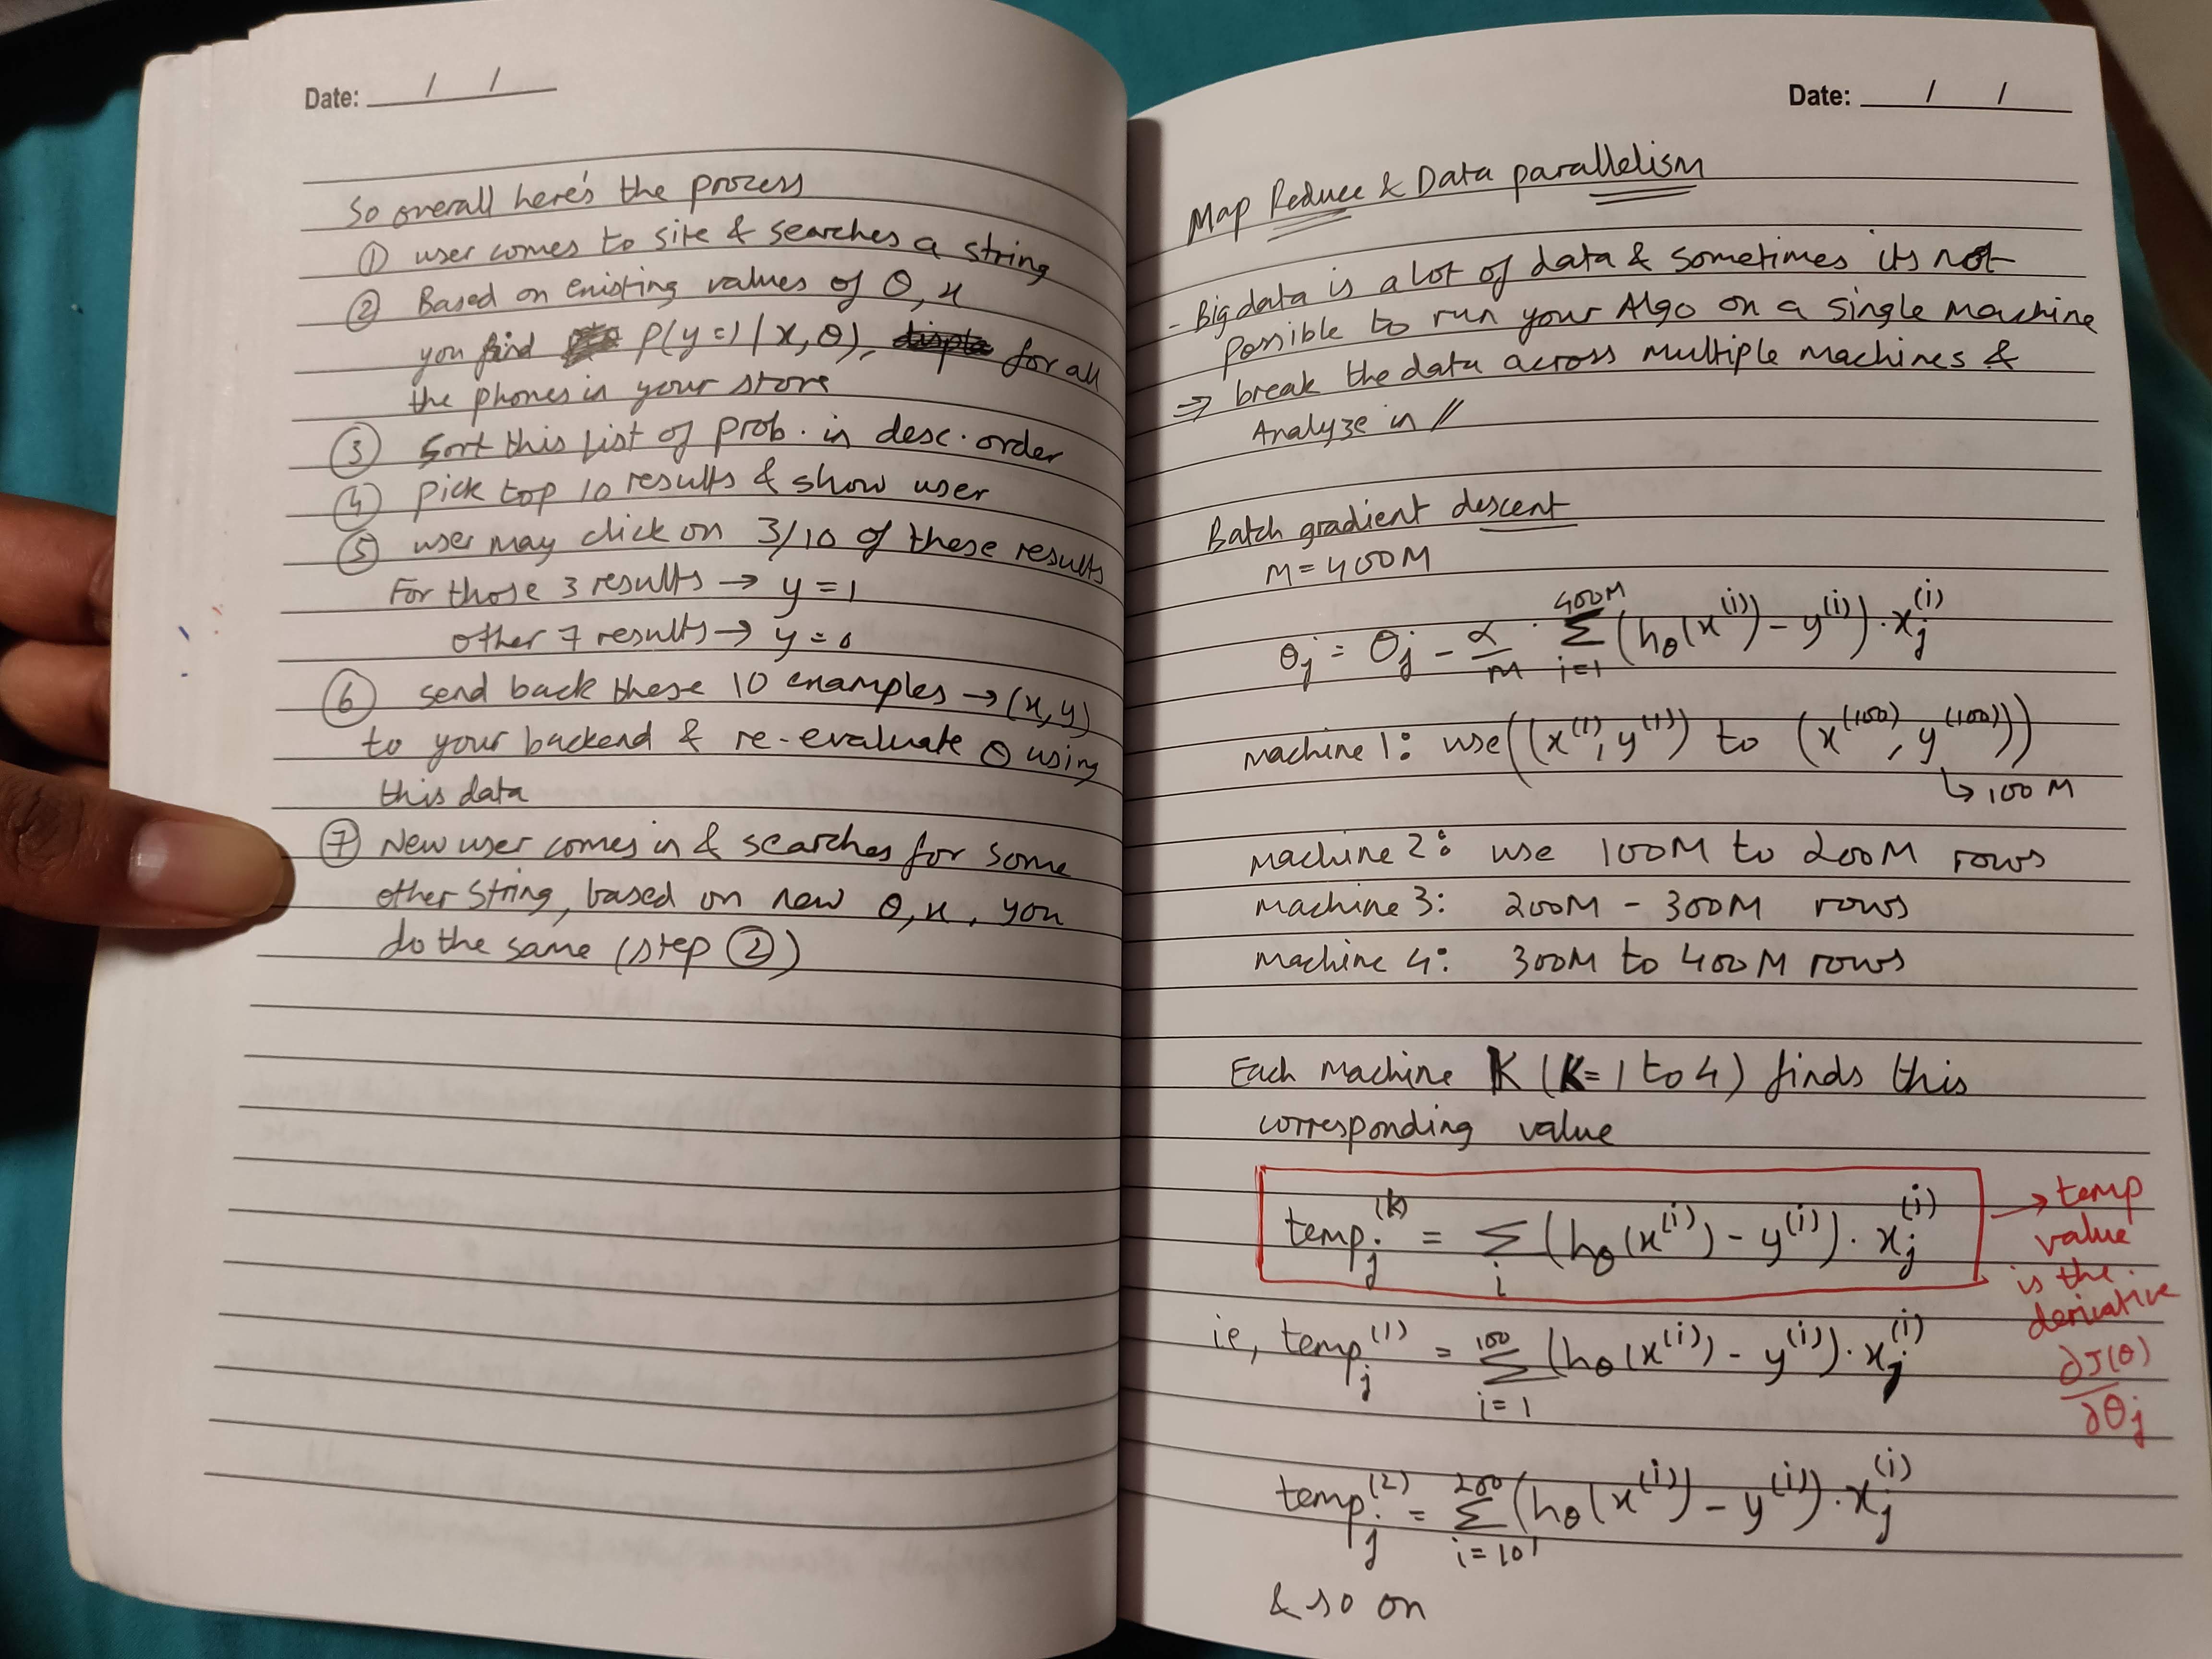 Date: / /
So overall here's the process
① user comes to site & searches a string
② Based on existing values of θ, x
you find P(y=1/x, θ), for all
the phones in your store
③ Sort this list of prob. in desc. order
④ pick top 10 results & show user
⑤ user may click on 3/10 of these results
For those 3 results → y = 1
other 7 results → y = 0
⑥ send back these 10 examples → (x, y)
to your backend & re-evaluate θ using
this data
⑦ New user comes in & searches for some
other string, based on new θ, x, you
do the same (step ②)
Date: / /
Map Reduce & Data parallelism
- Big data is a lot of data & sometimes its not
possible to run your Algo on a single machine
⇒ break the data across multiple machines &
Analyze in //
Batch gradient descent
M = 400M
θj = θj - α/M · Σ_{i=1}^{400M} (hθ(x^(i)) - y^(i)) · xj^(i)
machine 1: use ((x^(1), y^(1)) to (x^(100), y^(100)))
↳ 100M
machine 2: use 100M to 200M rows
machine 3: 200M - 300M rows
machine 4: 300M to 400M rows
Each machine K (K=1 to 4) finds this
corresponding value
tempj^(k) = Σ_i (hθ(x^(i)) - y^(i)) · xj^(i)
→ temp
value
is the
derivative
∂J(θ)/∂θj
ie, tempj^(1) = Σ_{i=1}^{100} (hθ(x^(i)) - y^(i)) · xj^(i)
tempj^(2) = Σ_{i=101}^{200} (hθ(x^(i)) - y^(i)) · xj^(i)
& so on